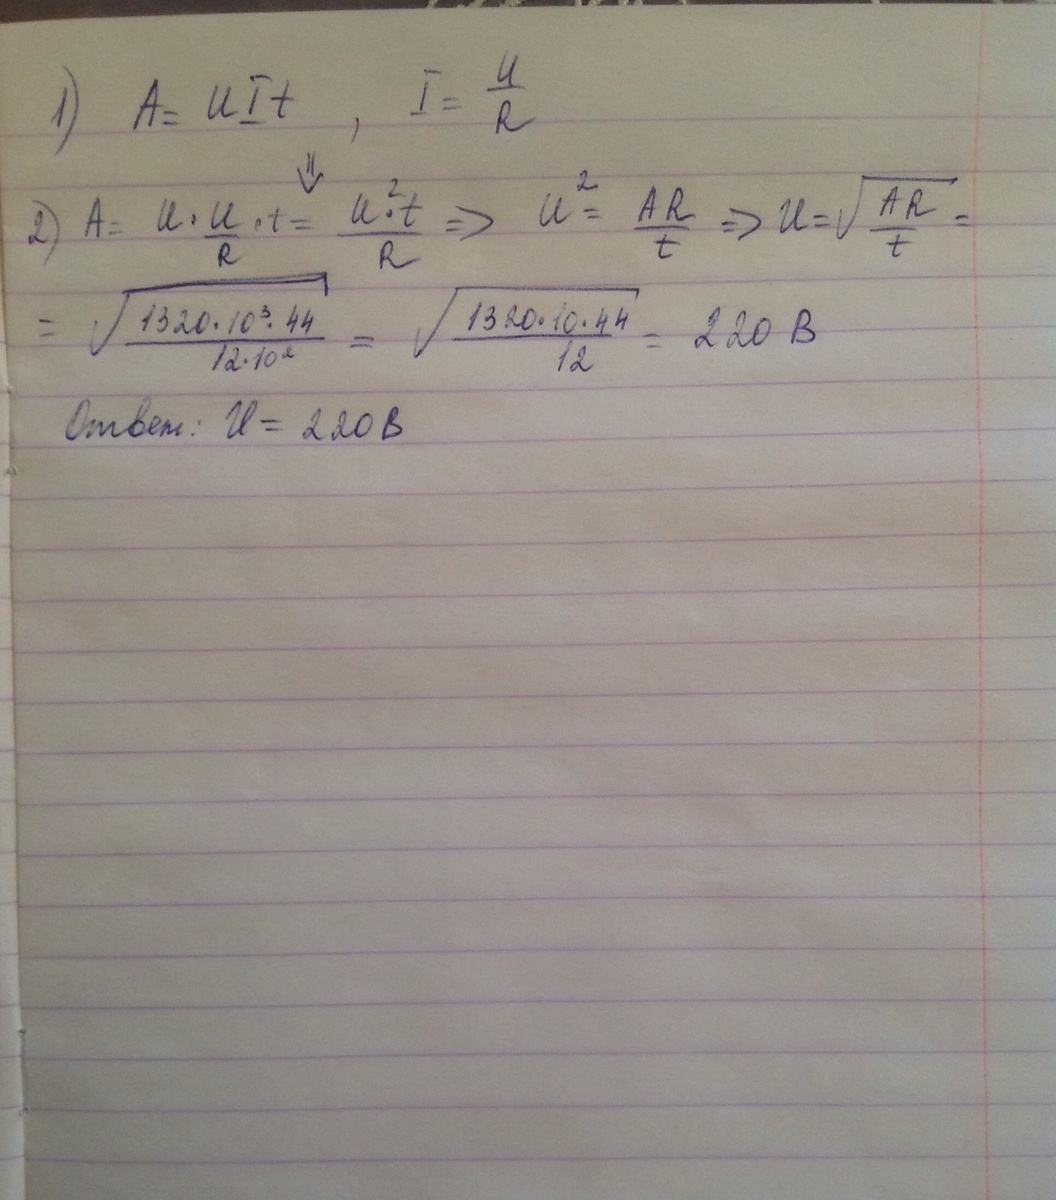 1) A = UIt , I = U/R
⇓
2) A = U · U/R · t = U²·t/R => U² = AR/t => U = √(AR/t) =
= √(1320·10³·44/12·10²) = √(1320·10·44/12) = 220 В
Ответ: U = 220 В